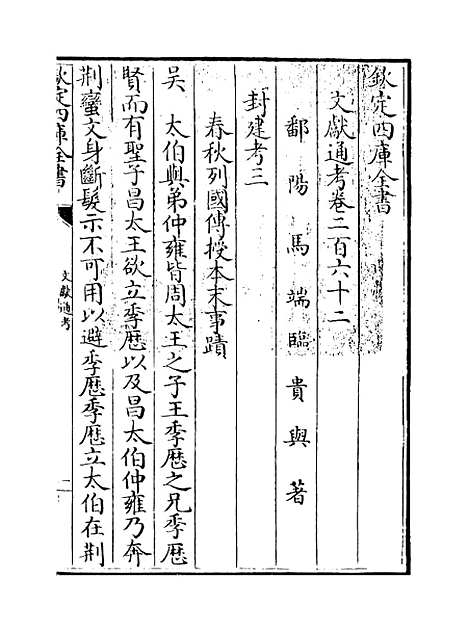 欽定四庫全書
文獻通考卷二百六十二
鄱陽馬端臨貴與著
封建考三
春秋列國傳授本末事蹟
吳　太伯與弟仲雍皆周太王之子王季歷之兄季歷
賢而有聖子昌太王欲立季歷以及昌太伯仲雍乃奔
荆蠻文身斷髮示不可用以避季歷季歷立太伯在荆
欽定四庫全書
文獻通考